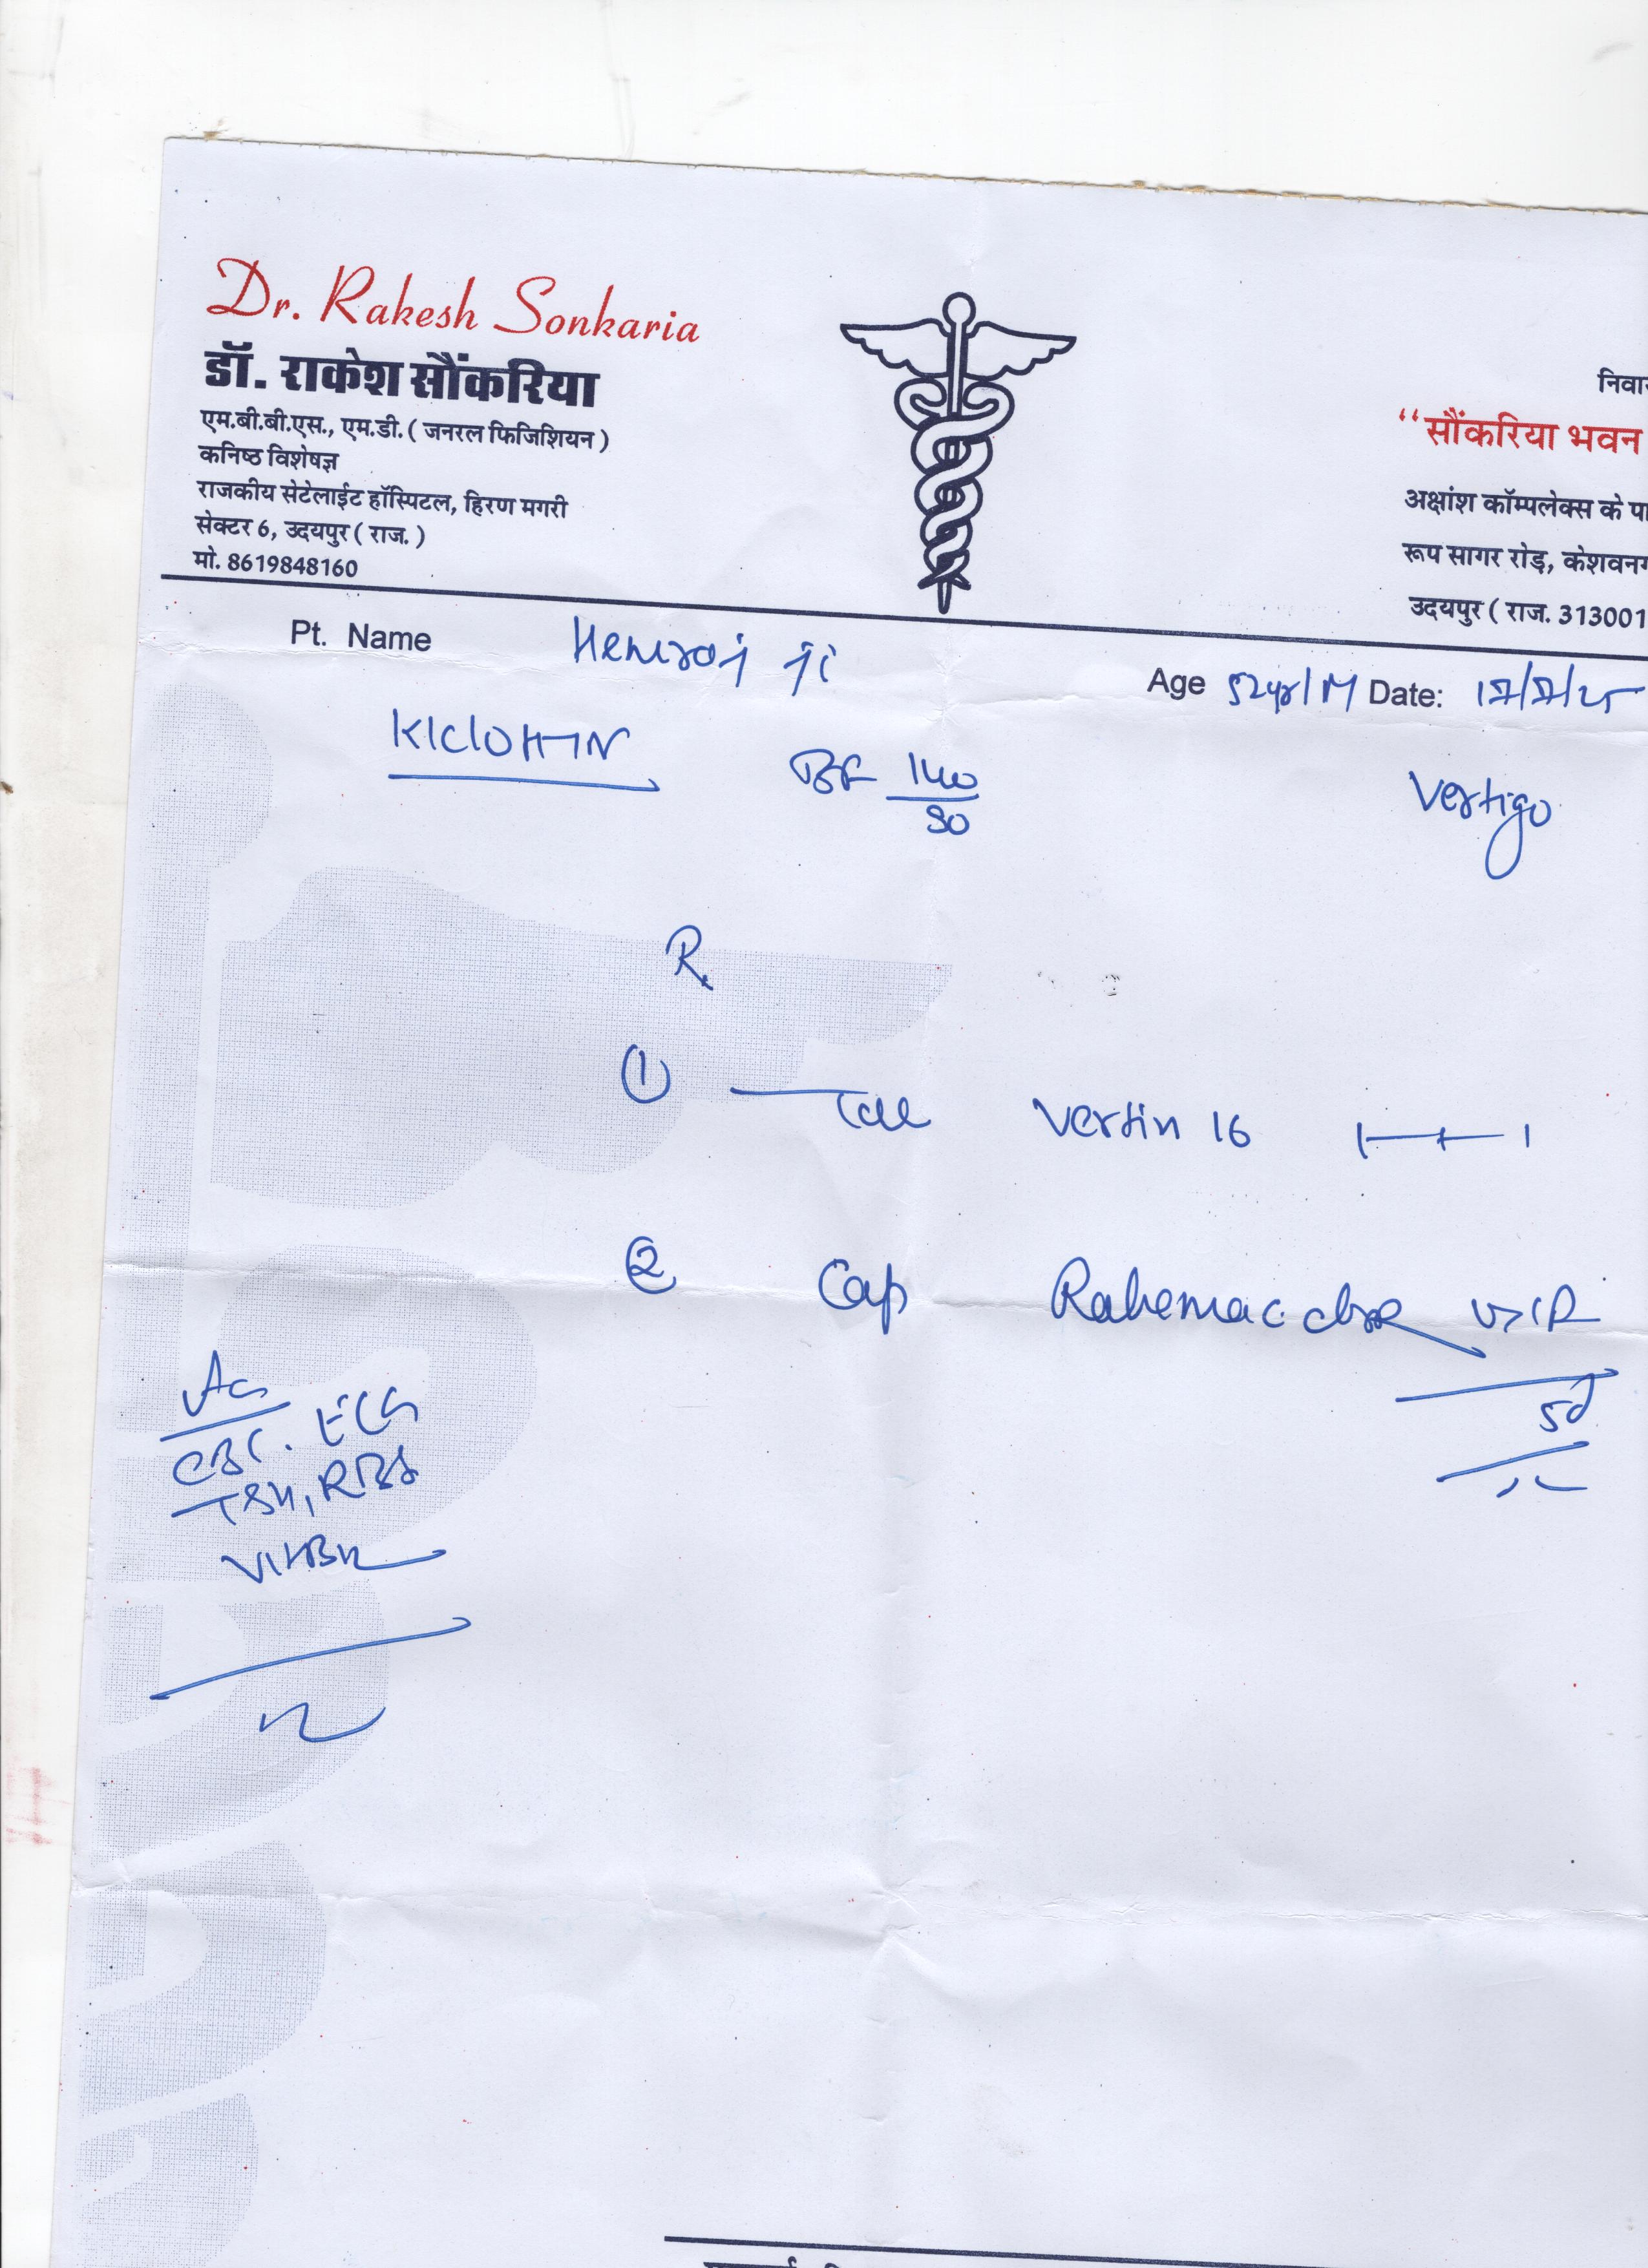 Dr. Rakesh Sonkaria
डॉ. राकेश सौंकरिया
एम.बी.बी.एस., एम.डी. ( जनरल फिजिशियन )
कनिष्ठ विशेषज्ञ
राजकीय सेटेलाईट हॉस्पिटल, हिरण मगरी
सेक्टर 6, उदयपुर ( राज. )
मो. 8619848160
“सौंकरिया भवन
अक्षांश कॉम्पलेक्स के
रूप सागर रोड़,
उदयपुर ( राज. 313001
Pt. Name Hemraj ji
Age 52yr/M Date:
K/C/O HTN BP 140/90 Vertigo
R
① Tab Vertin 16 1——1
② Cap
CBC. ECG
TSH, RBS
Vit B12